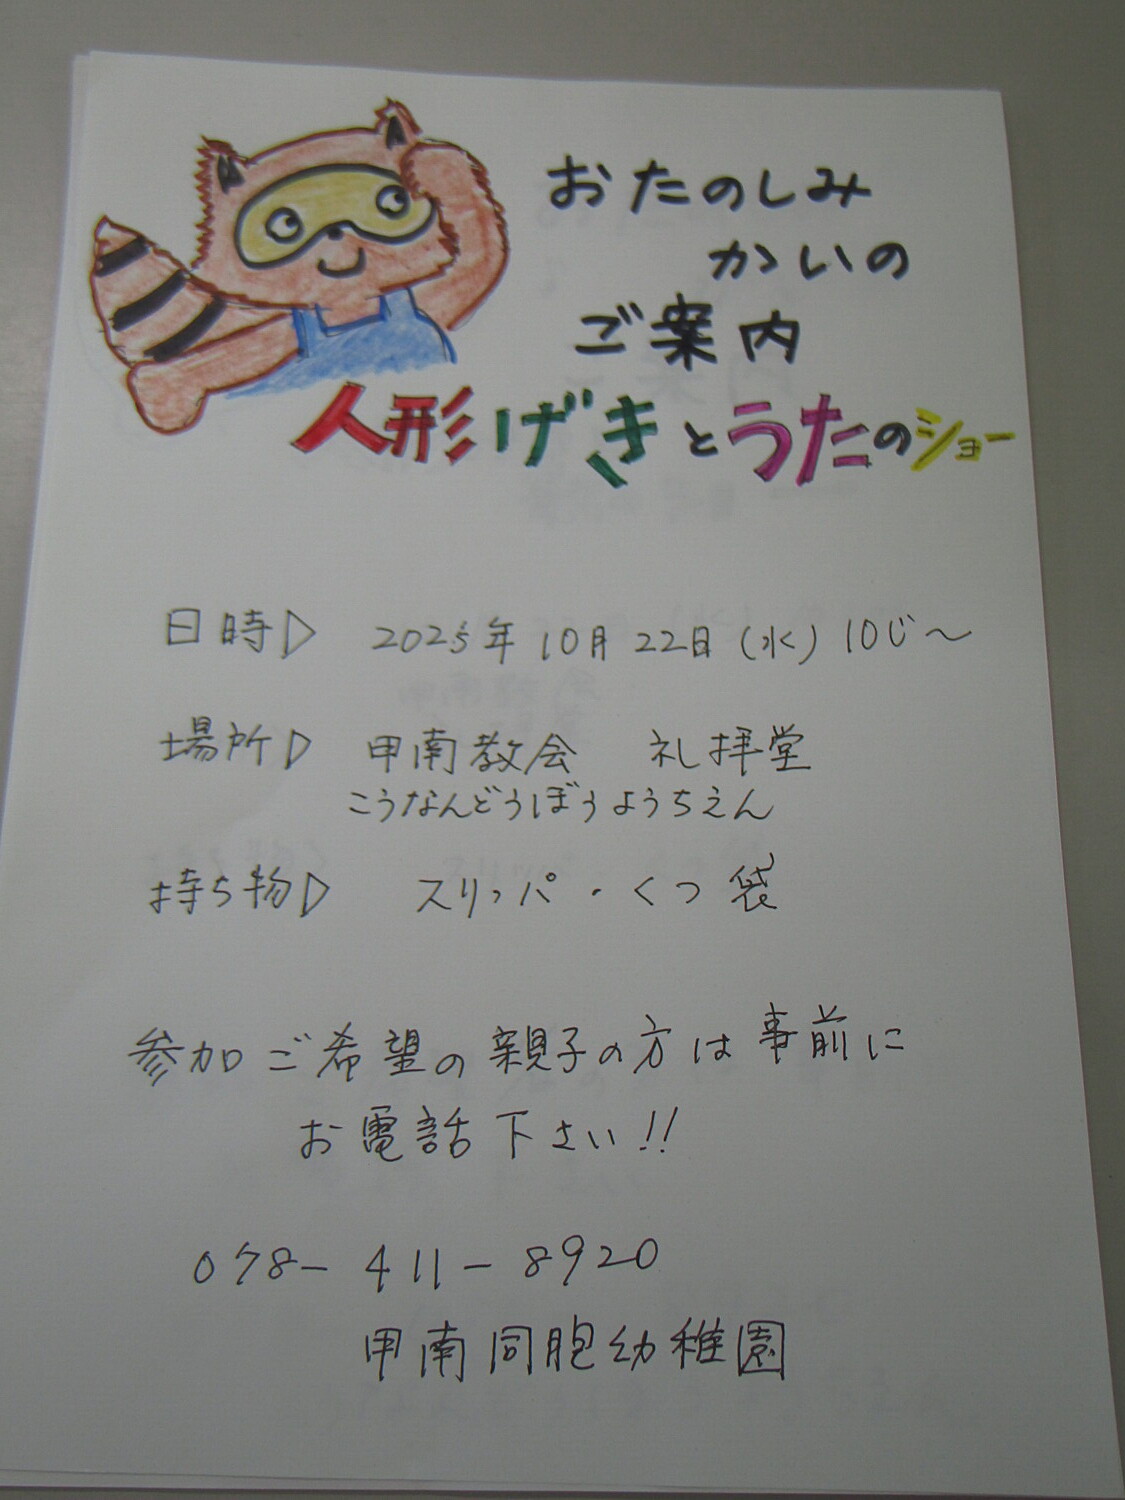 おたのしみ
かいの
ご案内
人形げきとうたのショー
日時▷ 2025年10月22日(水)10じ〜
場所▷ 甲南教会 礼拝堂
こうなんどうほうようちえん
持ち物▷ スリッパ・くつ袋
参加ご希望の親子の方は事前に
お電話下さい!!
078-411-8920
甲南同胞幼稚園